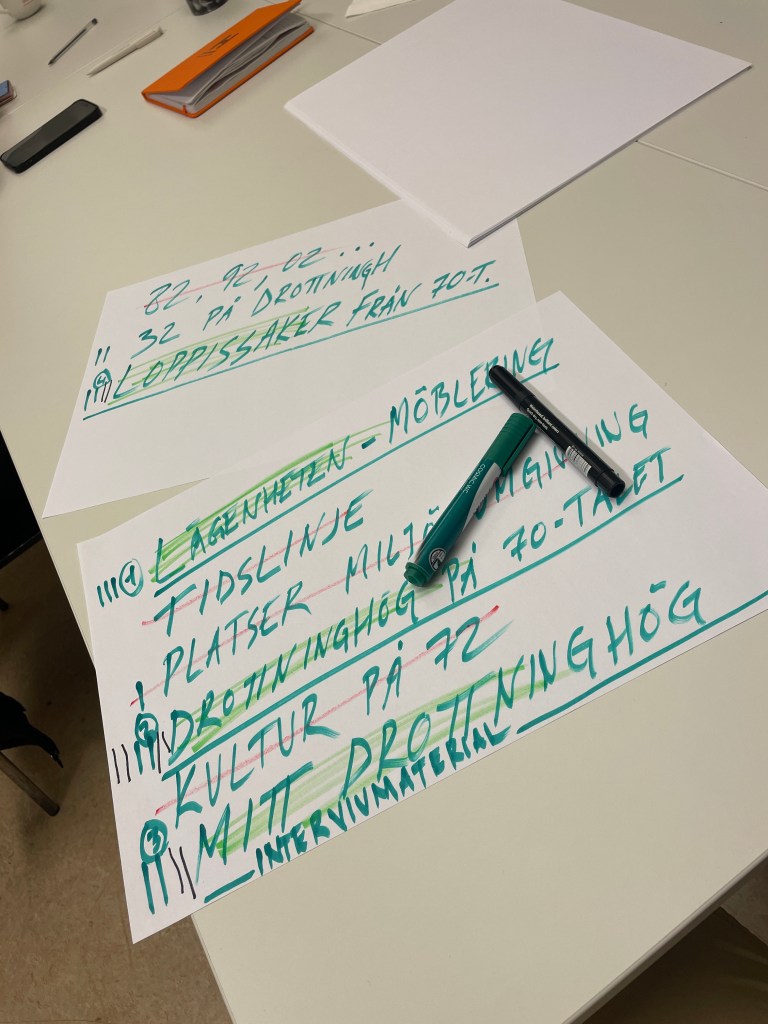 82, 92, 02...
32 PÅ DROTTNINGH
LOPPISSAKER FRÅN 70-T.
1 LÄGENHETEN - MÖBLERING
TIDSLINJE
PLATSER MILJÖ OMGIVNING
2 DROTTNINGHÖG PÅ 70-TALET
KULTUR PÅ 72
3 MITT DROTTNINGHÖG
INTERVIUMATERIAL